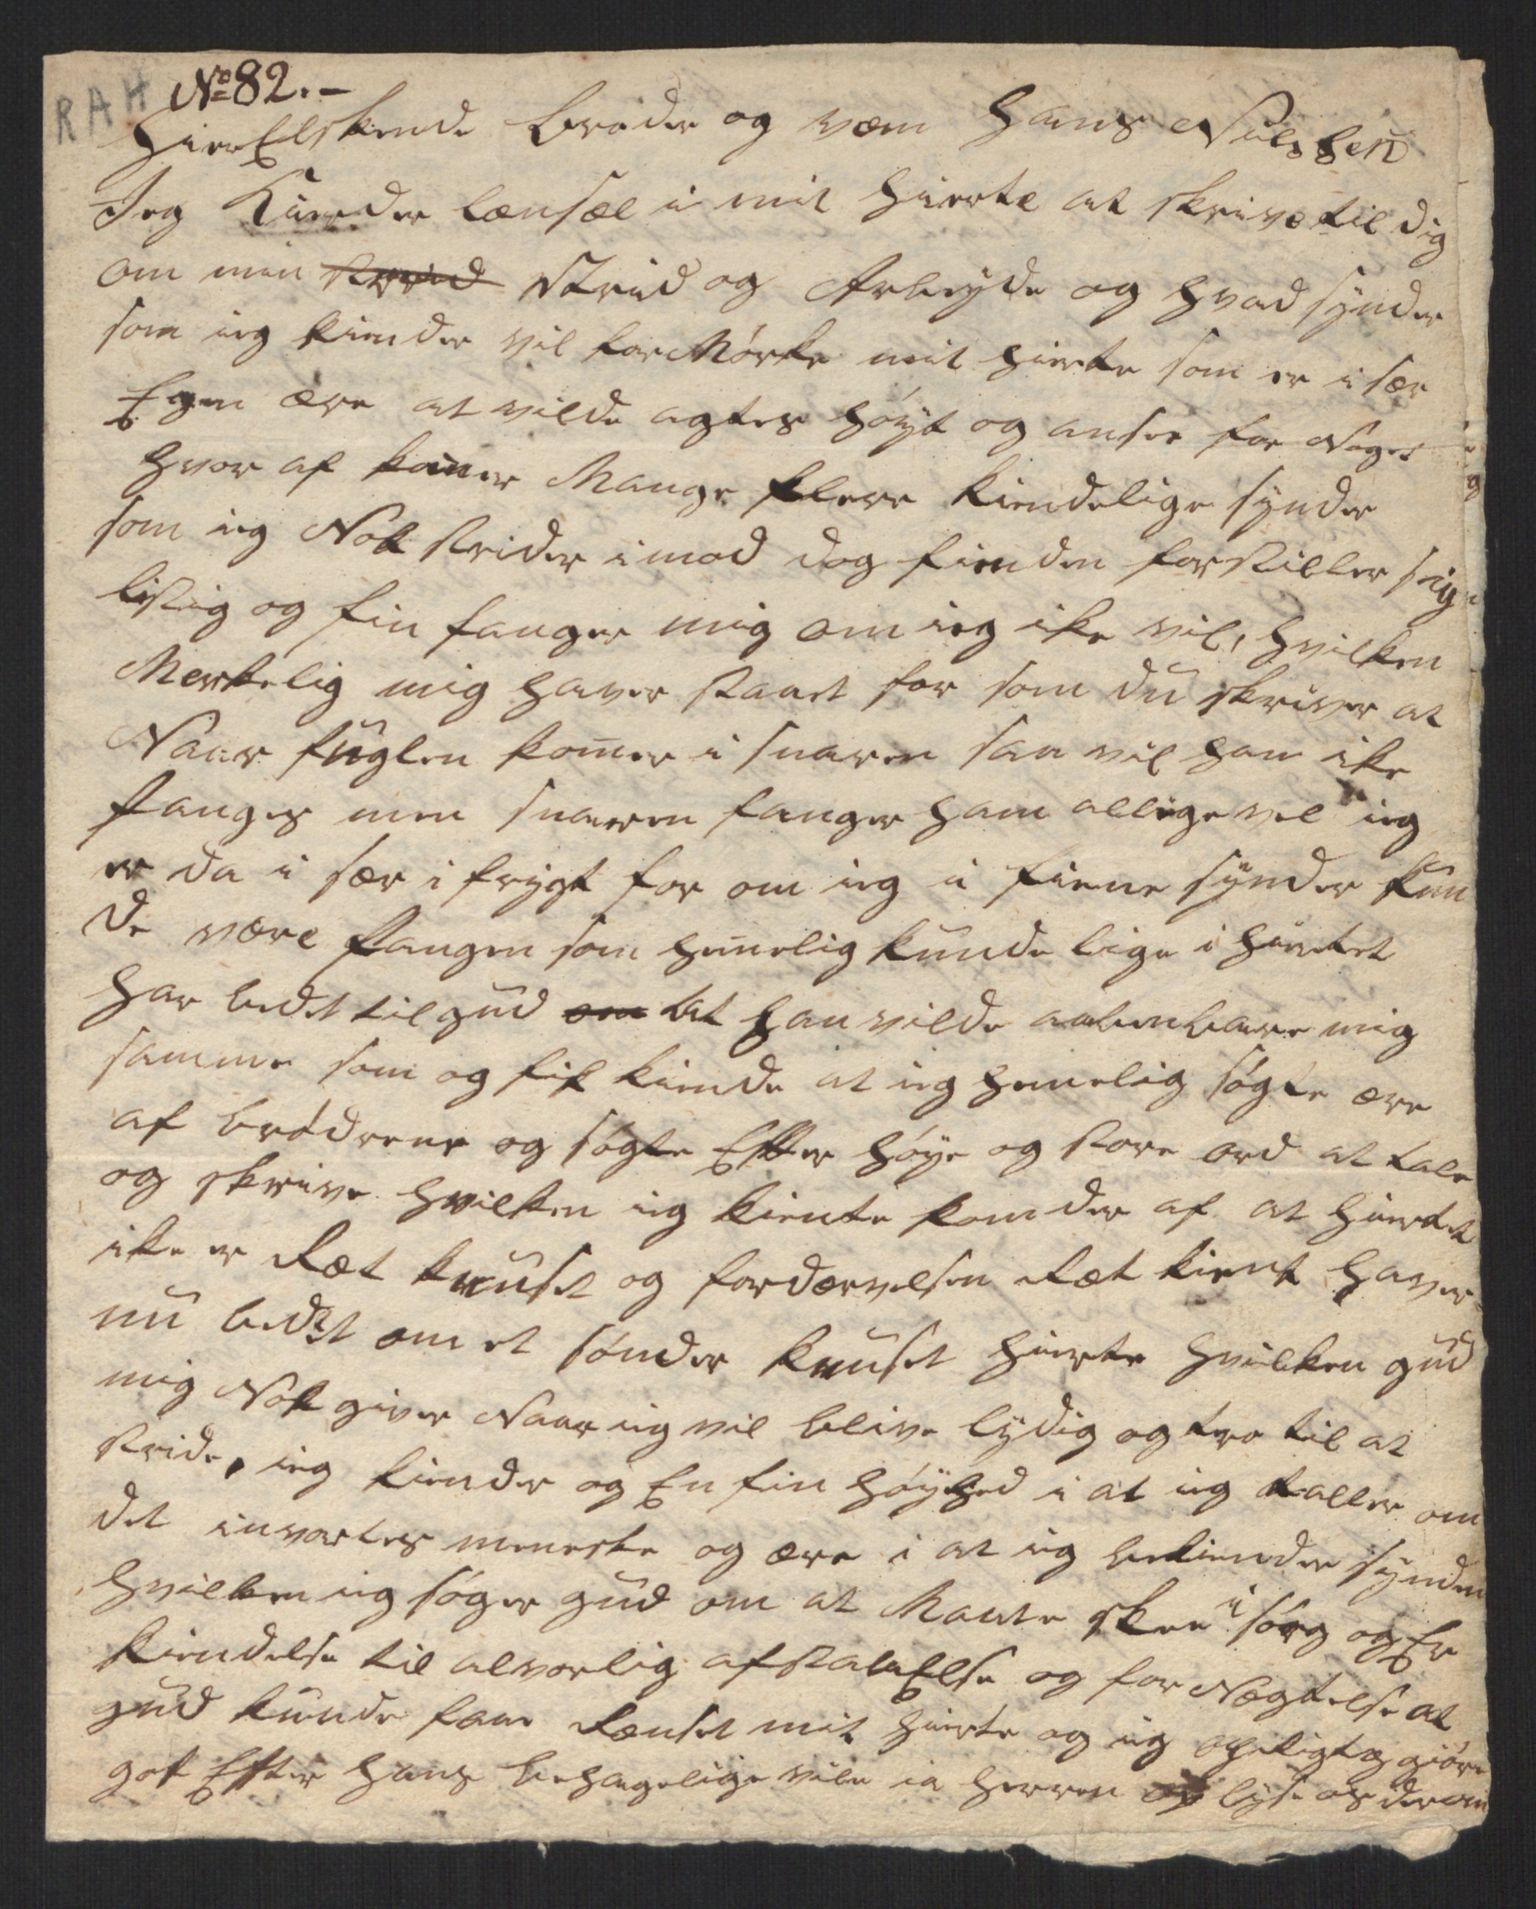 RAH No 82.-
Hierelskende broder og væn Hans Nielssen
Jeg Kiender lænsæl i mit hierte at skrive til dig
om min strid strid og Arbeyde og hvad synder
som ieg kiender vil forMørke mit hierte som er i sær
Egen ære at vilde agtes høyt og ansee for Noget
hvor af komer Mange flere kiendelige synder
som ieg Nok strider imod dog fienden forstiller sig
listig og fin fanger mig om ieg ike vil, hvilken
Merkelig mig haver staaet for som du skriver at
Naar fuglen komer i snaren saa vil han ike
fanges men snaren fanger ham alligevel ieg
er da i sær i frygt for om ieg i fiene synder kun
de være fangen som hemelig kunde lige i hiertet
har bedet til gud om at han vilde aabenbare mig
samme som og fik kiende at ieg hemelig søgte ære
af brødrene og søgte Efter høye og store ord at tale
og skrive hvilken ieg kiente kom der af at hiertet
ike er Ræt knuset og fordærvelsen Ræt kient haver
nu bedet om et sønder knuset hierte hvilken gud
mig Nok giver Naar ieg vil blive lydig og tro til at
stride, ieg kiender og En fin høyhed i at ieg taller om
det invortes meneske og ære i at ieg bekiender synden
hvilken ieg søger gud om at Maatte skee i sorg og Er
kiendelse til alvorlig afstaaElse og for Nægtelse at
gud kunde faae Rænset mit hierte og ieg opeligtig giøre
got Efter hans behagelige vilie ia herren op lyse os der om